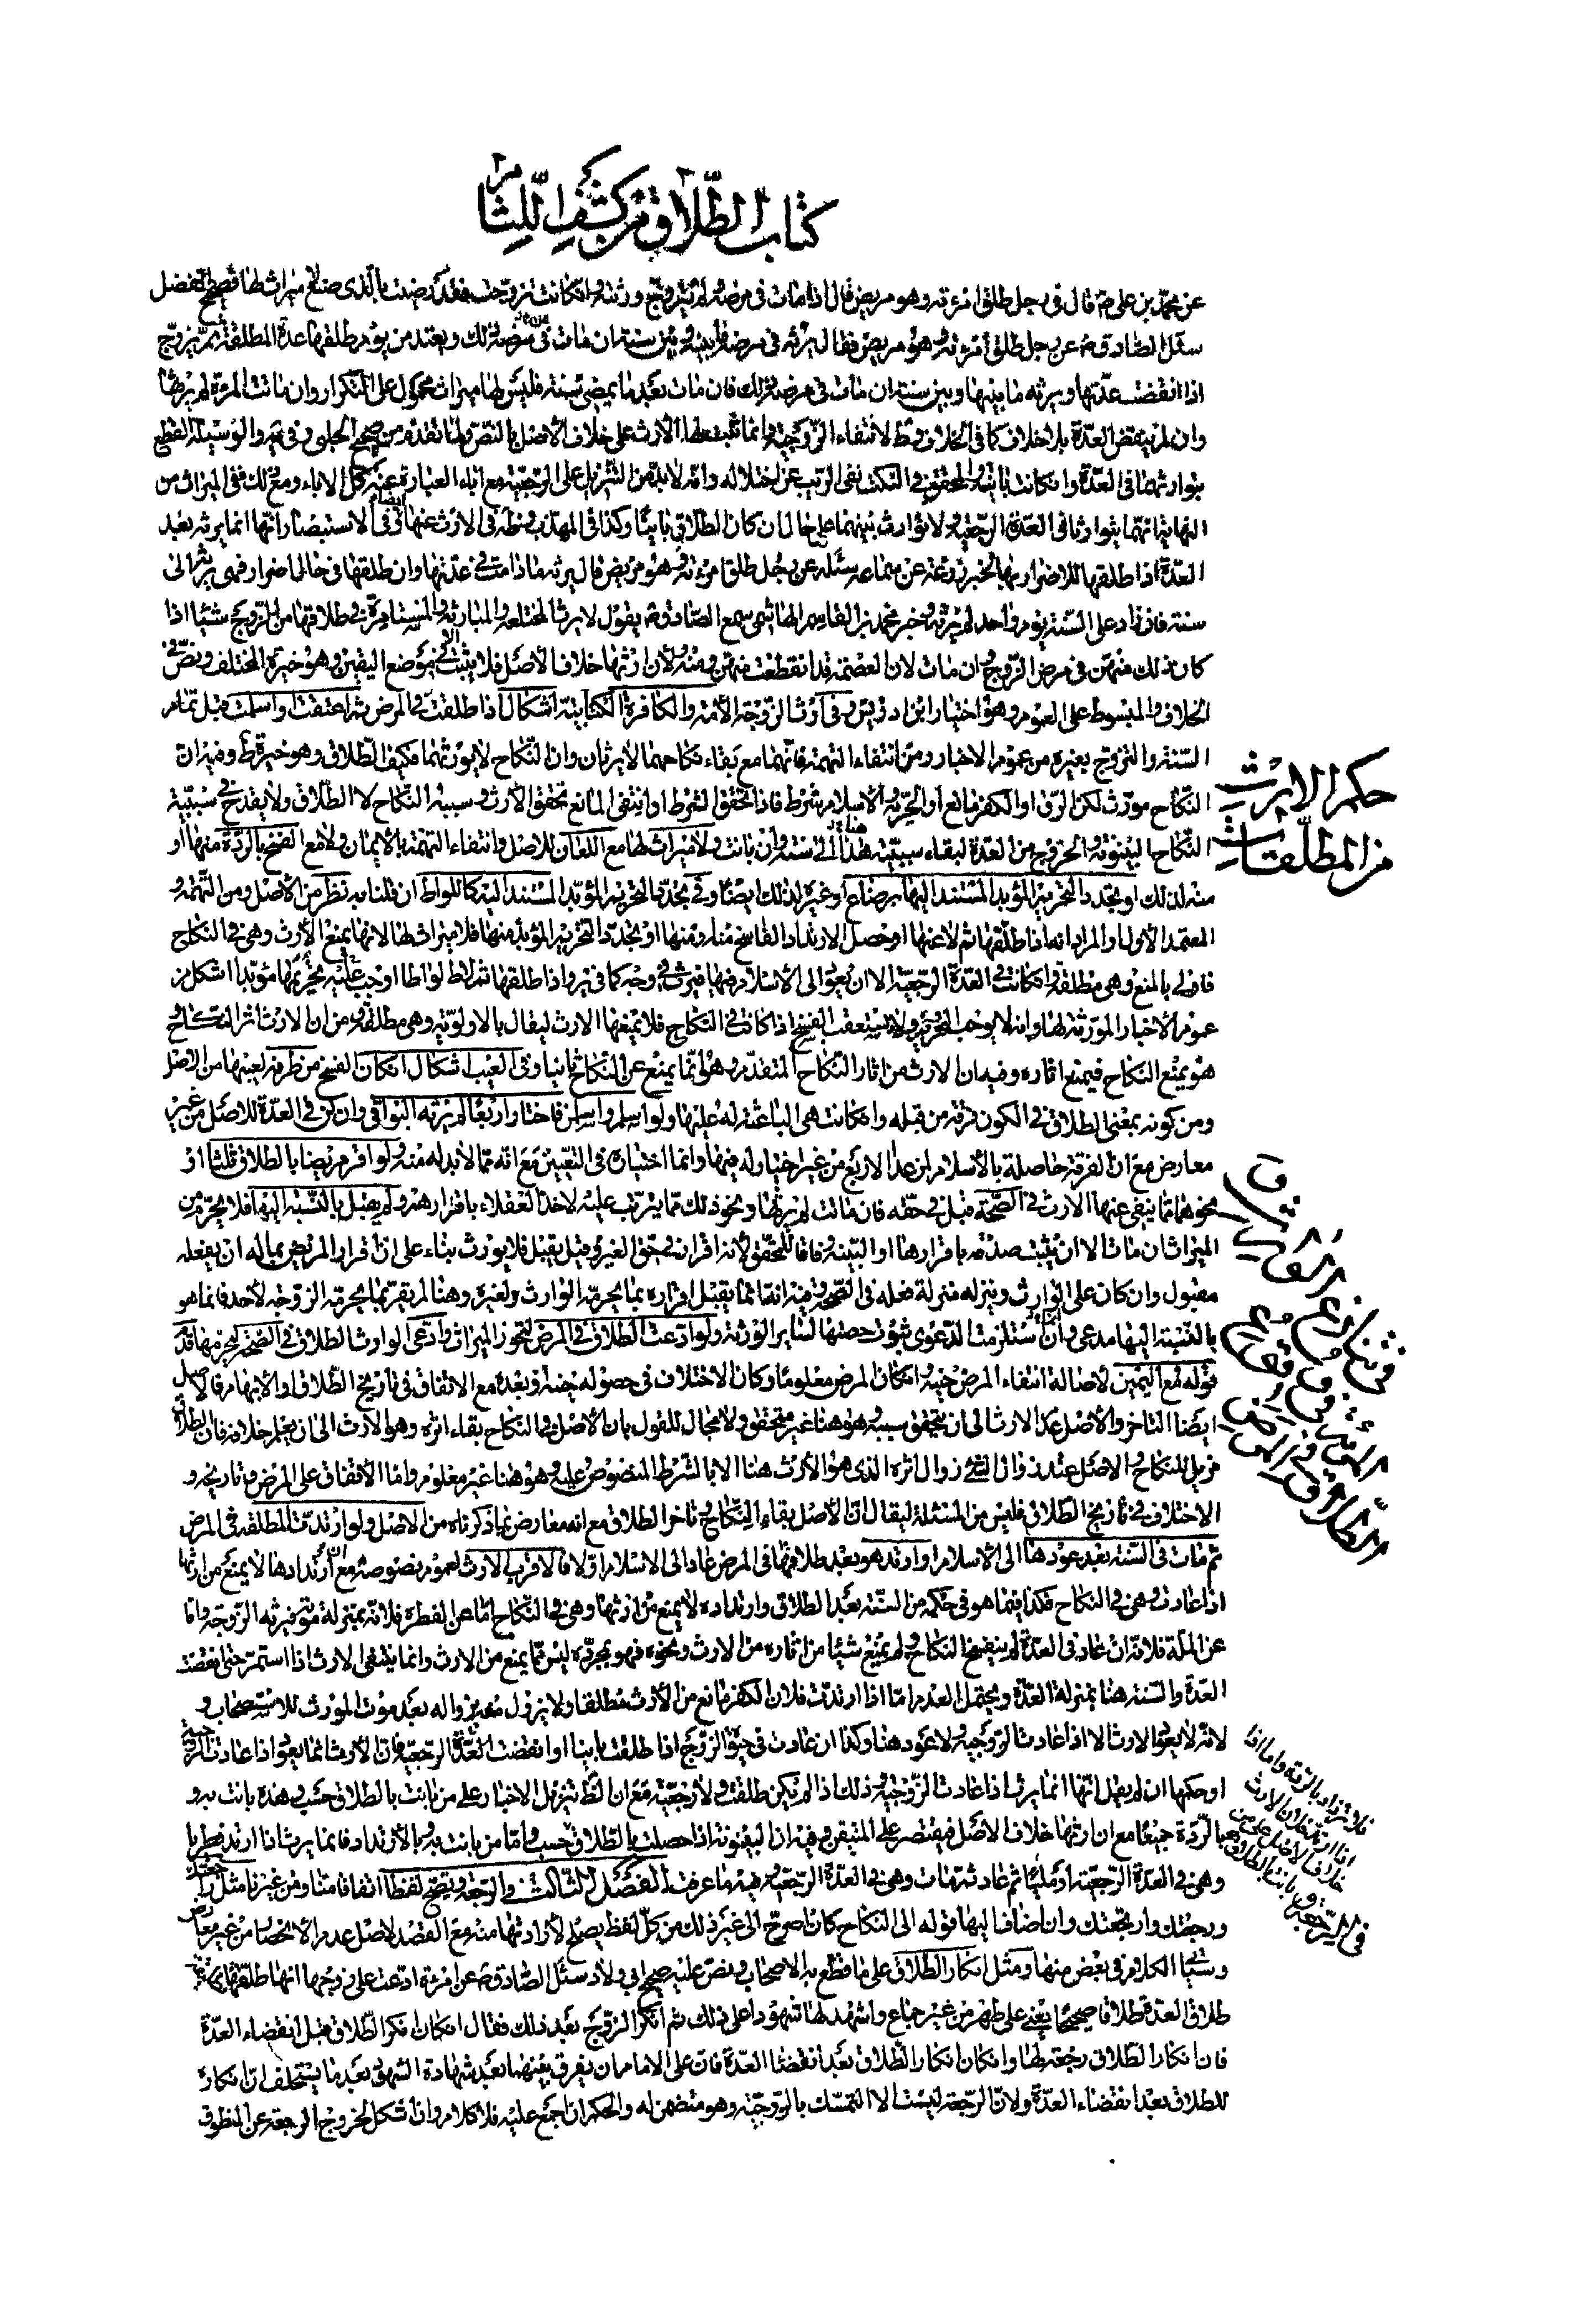 كتاب الطلاق من كشف اللثام
عن محمد بن علي ع قال في رجل طلق امرءته وهو مريض قال اذا مات في مرضه ولم تتزوج ورثته وان كانت تزوجت فقد رضيت بالذي صنع لا ميراث لها وصحيح الفضل
سئل الصادق ع عن رجل طلق امرءته وهو مريض فقال ترثه في مرضه ما بينه وبين سنة ان مات في مرضه ذلك وتعتد من يوم طلقها عدة المطلقة ثم تتزوج
اذا انقضت عدتها وترثه ما بينها وبين سنة ان مات في مرضه ذلك فان مات بعد ما يمضي سنة فليس لها ميراث محمول على التكرار وان ماتت المرءة لم يرثها
وان لم ينقض العدة بلا خلاف كما في الخلاف وط لانتفاء الزوجية وانما ثبت لها الارث على خلاف الاصل بالنص ولما تقدم من صحيح الحلبي وفي ية والوسيلة القطع
بتوارثهما في العدة وان كانت باينة والمحقق في النكت نفى الريب عن اختلاله وانه لابد من التنزيل على الرجعية مع اباء العبارة عنه كل الاباء ومع ذلك ففي الميراث من
النهاية انهما يتوارثا في العدة الرجعية ولا توارث بينهما على حال ان كان الطلاق باينا وكذا في المهذب ونظره في الارث عنها وفي الاستبصار ايضا انها انما يرثه بعد
العدة اذا طلقها للاضرار بها لخبر زرعة عن سماعه سئله عن رجل طلق امرءته وهو مريض قال ترثه ما دامت في عدتها وان طلقها في حال اضرار فهي ترثه الى
سنة فان زاد على السنة يوم واحد لم ترثه وخبر محمد بن القاسم الهاشمي سمع الصادق ع يقول لا يرث المختلعة والمبارئة والمستامرة في طلاقها من الزوج شيئا اذا
كان ذلك منهن في مرض الزوج وان مات لان العصمة قد انقطعت منهن ومنه ولان ارثها خلاف الاصل فلا يثبت الا في موضع اليقين وهو خيرة المختلف ونص في
الخلاف والمبسوط على العموم وهو اختيار ابن ادريس وفي ارث الزوجة الامة والكافرة الكتابية اشكال اذا طلقت في المرض ثم اعتقت او اسلمت قبل تمام
السنة والتزوج بغيره من عموم الاخبار ومن انتفاء التهمة فانهما مع بقاء نكاحهما لا يرثان وان النكاح لا يورثهما فكيف الطلاق وهو خيرة ط وفيه ان
النكاح مورث لكن الرق او الكفر مانع او الحرية والاسلام شرط فاذا تحقق الشرط او انتفى المانع تحقق الارث وسببه النكاح لا الطلاق ولا يقدح في سببية
النكاح البينونة والخروج من العدة لبقاء سببيته هنا الى سنة وان بانت ولا ميراث لها مع اللعان للاصل وانتفاء التهمة بالايمان ولا مع الفسخ بالردة منها او
منه لذلك او تجدد التحريم المؤبد المستند اليها برضاع او غيره لذلك ايضا وفي تجدد التحريم المؤبد المستند اليه كاللواط ان قلنا به نظر من الاصل ومن التهمة و
المعتمد الاول والمراد انه اذا طلقها ثم لاعنها او حصل الارتداد الفاسخ منه او منها او تجدد التحريم المؤبد منها فلا ميراث لها لانها يمنع الارث وهي في النكاح
فاولى بالمنع وهي مطلقة وان كانت في العدة الرجعية الا ان يعود الى الاسلام فيها فيرث في وجه كما في ير واذا طلقها ثم لاط لواطا اوجب عليه تحريمها مؤبدا اشكل من
عموم الاخبار المورثة لها وانه لا يوجب التحريم ولا يستعقب الفسخ اذا كانت في النكاح فلا يمنعها الارث ليقال بالاولوية وهي مطلقة ومن ان الارث اثر النكاح و
هو يمنع النكاح فيمنع اثاره وفيه ان الارث من اثار النكاح المتقدم وهو انما يمنع عن النكاح ثانيا وفي العيب اشكال ان كان الفسخ من طرفه لعيبها من الاصل
ومن كونه بمعنى الطلاق في الكون فرقة من قبله وان كانت هي الباعثة له عليها ولو اسلم واسلمن فاختار اربعا لم ترثه البواقي وان كن في العدة للاصل من غير
معارض مع ان الفرقة حاصلة بالاسلام لمن عدا الاربع من غير اختيار له فيها وانما اختياره في التعيين مع انه مما لا بد له منه ولو اقر مريضا بالطلاق ثلثا او
نحوها مما ينفي عنها الارث في الصحة قبل في حقه فان ماتت لم يرثها ونحو ذلك مما يترتب عليه لاخذ العقلاء باقرارهم ولم يقبل بالنسبة اليها فلا يحرم من
الميراث ان مات الا ان يثبت صدقه باقرارها او البينة وفاقا للمحقق لانه اقرار في حق الغير وقيل يقبل فلا يورث بناء على ان اقرار المريض بما له ان يفعله
مقبول وان كان على الوارث وينزله منزلة فعله في الصحة وفيه انه انما يقبل اقراره بما يحرم به الوارث ولغيره وهنا لم يقر بما يحرم به الزوجة لاحد فانما هو
بالنسبة اليها مدعي وان استلزمت الدعوى ثبوت حصتها لساير الورثة ولو ادعت الطلاق في المرض لتحوز الميراث وادعى الوارث الطلاق في الصحة ليحرمها قدم
قوله مع اليمين لاصالة انتفاء المرض حينه ان كان المرض معلوما وكان الاختلاف في حصوله حينه او بعده مع الاتفاق في تاريخ الطلاق او الابهام فالاصل
ايضا التاخر والاصل عدم الارث الى ان يتحقق سببه وهو هنا غير متحقق ولا مجال للقول بان الاصل في النكاح بقاء اثره وهو الارث الى ان يعلم خلافه فان الطلاق
مزيل للنكاح والاصل عند زوال الشئ زوال اثره الذي هو الارث هنا الا بالشرط المنصوص عليه وهو هنا غير معلوم واما الاتفاق على المرض وتاريخه و
الاختلاف في تاريخ الطلاق فليس من المسئلة ليقال ان الاصل بقاء النكاح وتاخر الطلاق مع انه معارض بما ذكرناه من الاصل ولو ارتدت المطلقة في المرض
ثم مات في السنة بعد عودها الى الاسلام او ارتد هو بعد طلاقها في المرض عاد الى الاسلام او لا فالاقرب الارث لعموم نصوصه مع ان ارتدادها لا يمنع من ارثها
اذا عادت وهي في النكاح فكذا فيما هو في حكمه من السنة بعد الطلاق وارتداده لا يمنع من ارثها وهي في النكاح اما عن الفطرة فلانه بمنزلة موته فيرثه الزوجة واما
عن الملة فلانه ان عاد في العدة لم ينفسخ النكاح ولم يمنع شيئا من اثاره من الارث ونحوه فهو بمجرده ليس مما يمنع من الارث وانما ينتفي الارث اذا استمر حتى انقضت
العدة والسنة هنا بمنزلة العدة ويحتمل العدم اما اذا ارتدت فلان الكفر مانع من الارث مطلقا ولا يزول بزواله بعد موت المورث للاستصحاب و
لانه لا يعود الارث الا اذا عادت الزوجية ولا عود هنا وكذا ان عادت في حيوة الزوج اذا طلقت باينا او انقضت العدة الرجعية فان الارث انما يعود اذا عادت الزوجية
او حكمها ان لم يقل انها انما يرث اذا عادت الزوجية وذلك اذ لم تكن طلقت ولا رجعية مع ان الظ تنزيل الاخبار على من بانت بالطلاق حسب وهذه بانت به و
بالردة جميعا مع ان ارثها خلاف الاصل فيقتصر على المتيقن وفيه ان البينونة اذا حصلت بالطلاق حسب واما من بانت به وبالارتداد فانما يرث اذا ارتد فطريا
وهي في العدة الرجعية او مليا ثم عاد ثم مات وهي في العدة الرجعية وفيه ما عرفت الفصل الثالث في الرجعة ويصح لفظا اتفاقا منا ومن غيرنا مثل راجعتك
ورجعتك وارتجعتك وان اضاف اليها قوله الى النكاح كان اصرح الى غير ذلك من كل لفظ يصلح لارادتها منه مع القصد لاصل عدم الاختصاص من غير معارض
وسياتي الكلام في بعض منها ومثل انكار الطلاق على ما قطع به الاصحاب ونص عليه صحيح ابي ولاد سئل الصادق ع عن امرءة ادعت على زوجها انها طلقها تطليقة
طلاق العدة طلاقا صحيحا يعني على طهر من غير جماع واشهد لها شهودا على ذلك ثم انكر الزوج بعد ذلك فقال ان كان انكر الطلاق قبل انقضاء العدة
فان انكار الطلاق رجعة لها وان كان انكار الطلاق بعد انقضاء العدة فان على الامام ان يفرق بينهما بعد شهادة الشهود بعد ما يستحلف ان انكاره
للطلاق بعد انقضاء العدة ولان الرجعة ليست الا التمسك بالزوجية وهو متضمن له والحكم ان اجمع عليه فلا كلام وان اشكل لخروج الرجعة عن المنطوق
حكم الارث
من المطلقات